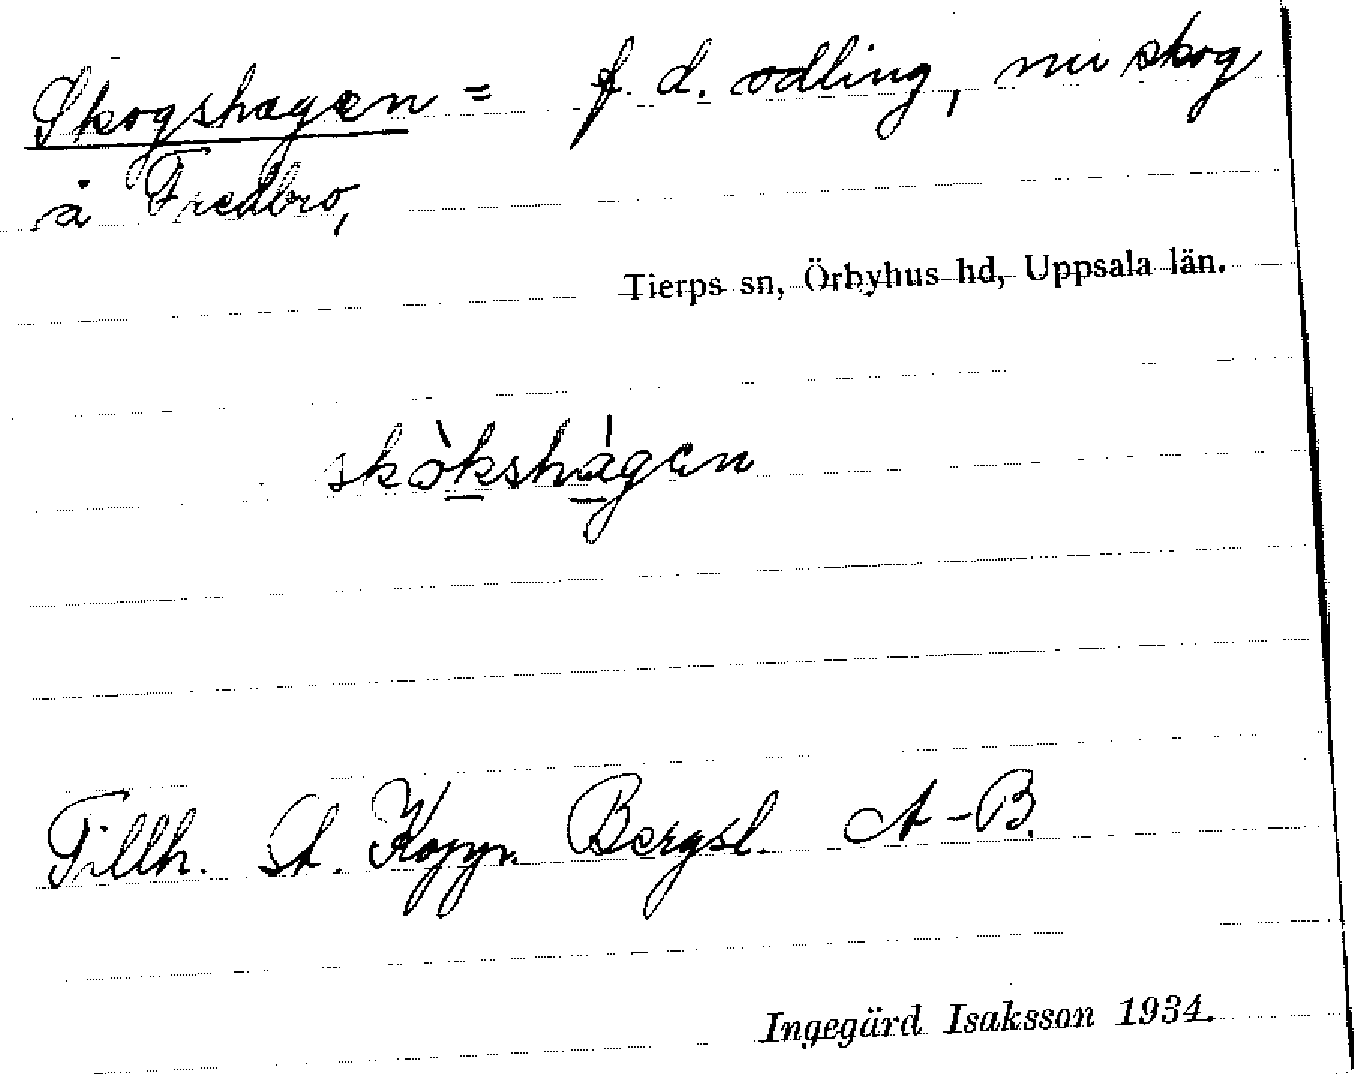 Skogshagen = f. d. odling, nu skog
å Fredbro,
Tierps sn, Örbyhus hd, Uppsala län.
skòkshágen
Tillh. St. Kopp. Bergsl. A-B.
Ingegärd Isaksson 1934.